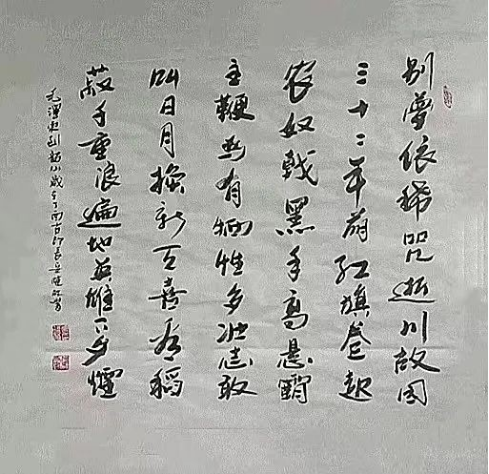 别夢依稀咒逝川故园
三十二年前红旗卷起
农奴戟黑手高悬霸
主鞭為有牺牲多壮志敢
叫日月换新天喜看稻
菽千重浪遍地英雄下夕烟
毛澤東到韶山